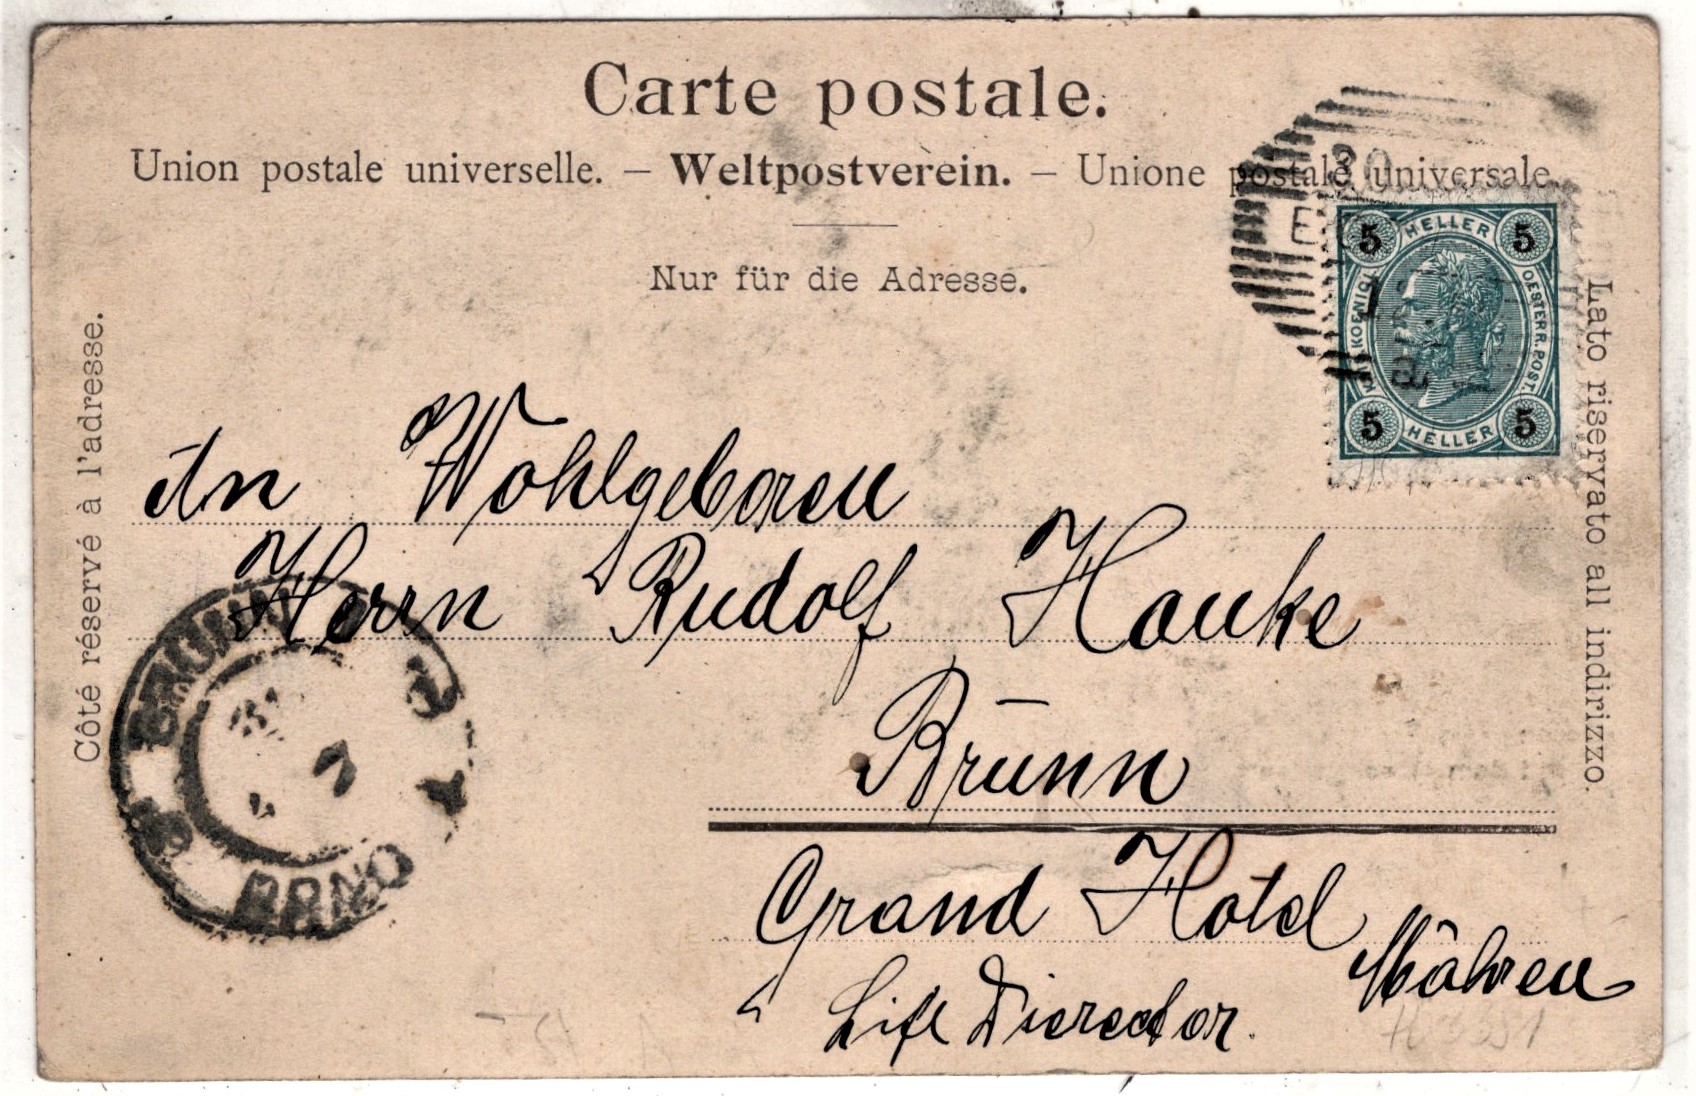 Carte postale.
Union postale universelle. – Weltpostverein. – Unione postale universale.
Nur für die Adresse.
Côté réservé à l'adresse.
Lato riservato all indirizzo.
5 HELLER 5
KAIS. KOENIGL. OESTERR. POST.
5 HELLER 5
An Wohlgeboren
Herrn Rudolf Hauke
Brünn
Grand Hotel
Mähren
Lift Dierector.
BRÜNN
BRNO